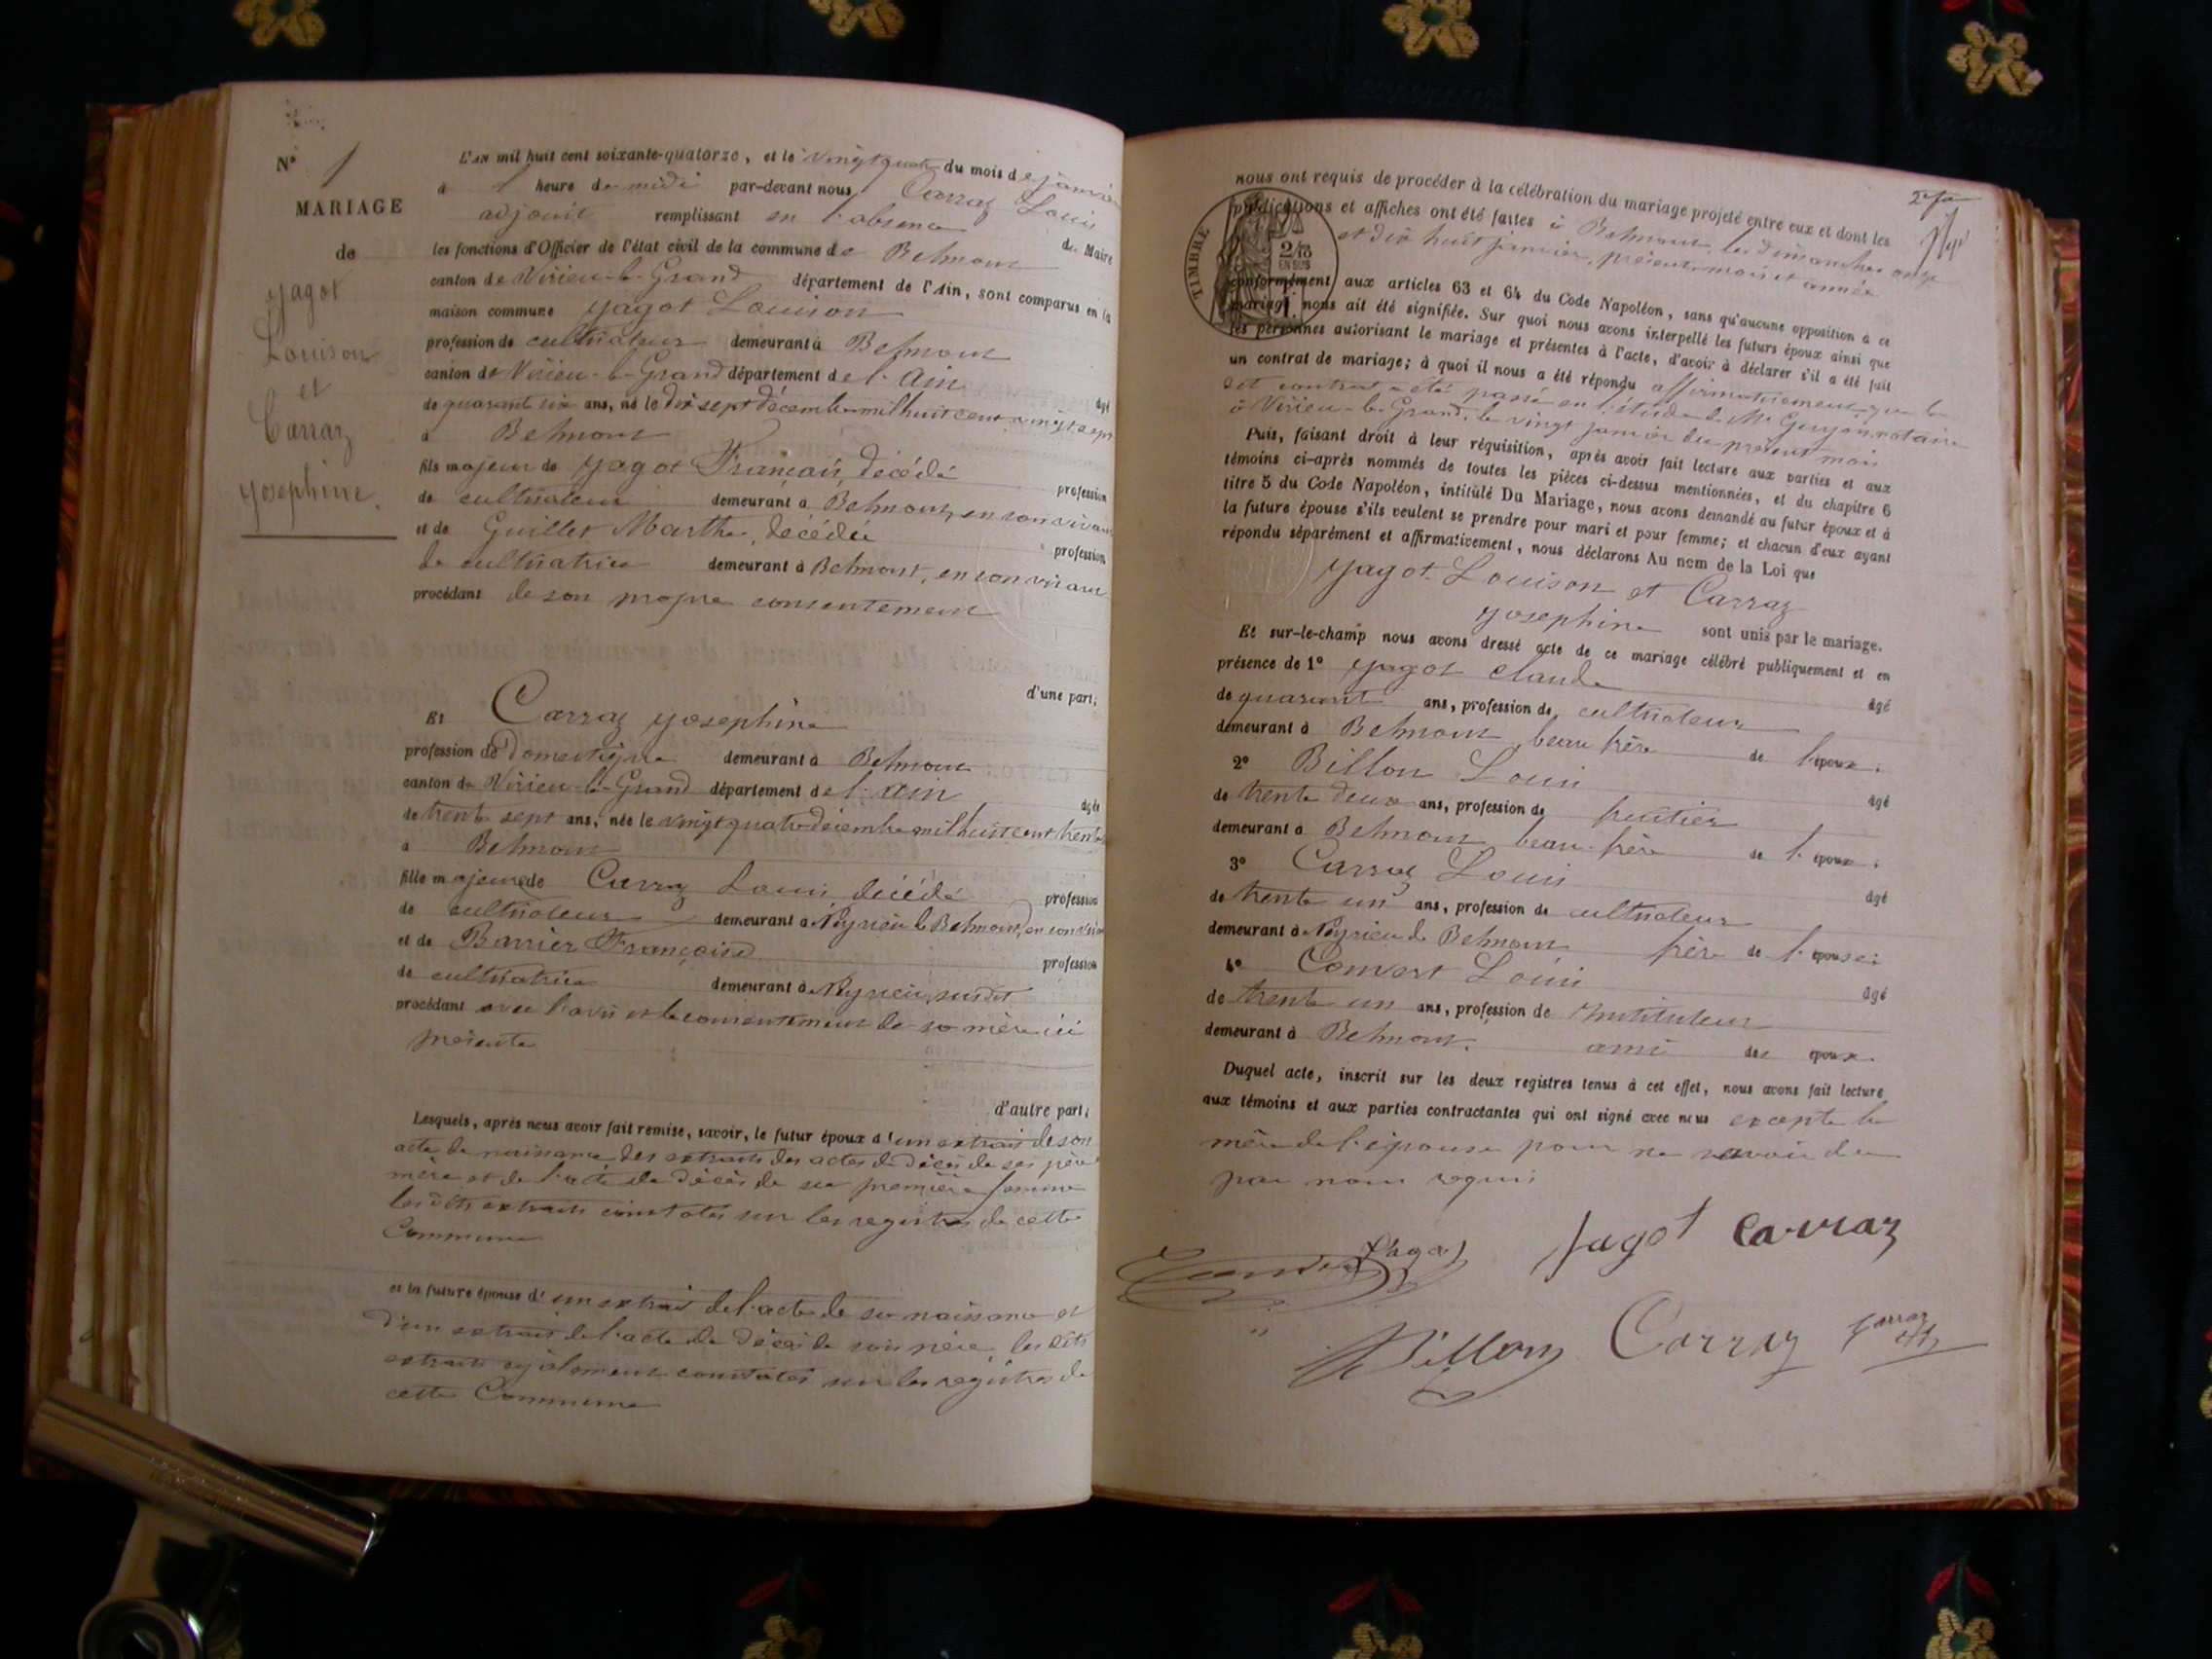 N° 1
MARIAGE
de
Jagot
Louison
et
Carraz
Josephine.
L'AN mil huit cent soixante-quatorze, et le vingt quatre du mois de janvier
à 1 heure de midi par-devant nous Carraz Louis
adjoint remplissant en l'absence du Maire
les fonctions d'Officier de l'état civil de la commune de Belmont
canton de Virieu-le-Grand département de l'Ain, sont comparus en la
maison commune Jagot Louison
profession de cultivateur demeurant à Belmont
canton de Virieu-le-Grand département de l'Ain âgé
de quarante six ans, né le dix sept décembre mil huit cent vingt sept
à Belmont
fils majeur de Jagot François, décédé profession
de cultivateur demeurant à Belmont, en son vivant
et de Guillet Marthe, décédée profession
de cultivatrice demeurant à Belmont, en son vivant
procédant de son propre consentement
d'une part;
Et Carraz Josephine
profession de domestique demeurant à Belmont
canton de Virieu-le-Grand département de l'Ain âgée
de trente sept ans, née le vingt quatre décembre mil huit cent trente
à Belmont
fille majeure de Carraz Louis, décédé profession
de cultivateur demeurant à Neyrieu de Belmont, en son vivant
et de Barrier Françoise profession
de cultivatrice demeurant à Neyrieu susdit
procédant avec l'avis et le consentement de sa mère ici
présente
d'autre part;
Lesquels, après nous avoir fait remise, savoir, le futur époux d'un extrait de son
acte de naissance des extraits des actes de décès de ses père
mère et de l'acte de décès de sa première femme
les dits extraits constatés sur les registres de cette
Commune
et la future épouse d'un extrait de l'acte de sa naissance et
d'un extrait de l'acte de décès de son père, les dits
extraits également constatés sur les registres de
cette Commune
nous ont requis de procéder à la célébration du mariage projeté entre eux et dont les
publications et affiches ont été faites à Belmont les dimanches onze
et dix huit janvier, présents mois et année
TIMBRE
2/10
EN SUS
conformément aux articles 63 et 64 du Code Napoléon, sans qu'aucune opposition à ce
mariage nous ait été signifiée. Sur quoi nous avons interpellé les futurs époux ainsi que
les personnes autorisant le mariage et présentes à l'acte, d'avoir à déclarer s'il a été fait
un contrat de mariage; à quoi il nous a été répondu affirmativement, que le
dit contrat a été passé en l'étude de Me Guyon, notaire
à Virieu-le-Grand, le vingt janvier du présent mois
Puis, faisant droit à leur réquisition, après avoir fait lecture aux parties et aux
témoins ci-après nommés de toutes les pièces ci-dessus mentionnées, et du chapitre 6
titre 5 du Code Napoléon, intitulé Du Mariage, nous avons demandé au futur époux et à
la future épouse s'ils veulent se prendre pour mari et pour femme; et chacun d'eux ayant
répondu séparément et affirmativement, nous déclarons Au nom de la Loi que
Jagot Louison et Carraz
Josephine sont unis par le mariage.
Et sur-le-champ nous avons dressé acte de ce mariage célébré publiquement et en
présence de 1° Jagot Claude âgé
de quarante ans, profession de cultivateur
demeurant à Belmont beau frère de l'époux;
2° Billon Louis âgé
de trente deux ans, profession de fruitier
demeurant à Belmont beau-frère de l'époux;
3° Carraz Louis âgé
de trente un ans, profession de cultivateur
demeurant à Neyrieu de Belmont frère de l'épouse;
4° Convert Louis âgé
de trente un ans, profession de Instituteur
demeurant à Belmont. ami des époux.
Duquel acte, inscrit sur les deux registres tenus à cet effet, nous avons fait lecture
aux témoins et aux parties contractantes qui ont signé avec nous excepté la
mère de l'épouse pour ne savoir de ce
par nous requis
Jagot Jagot Carraz
Billon Carraz Carraz